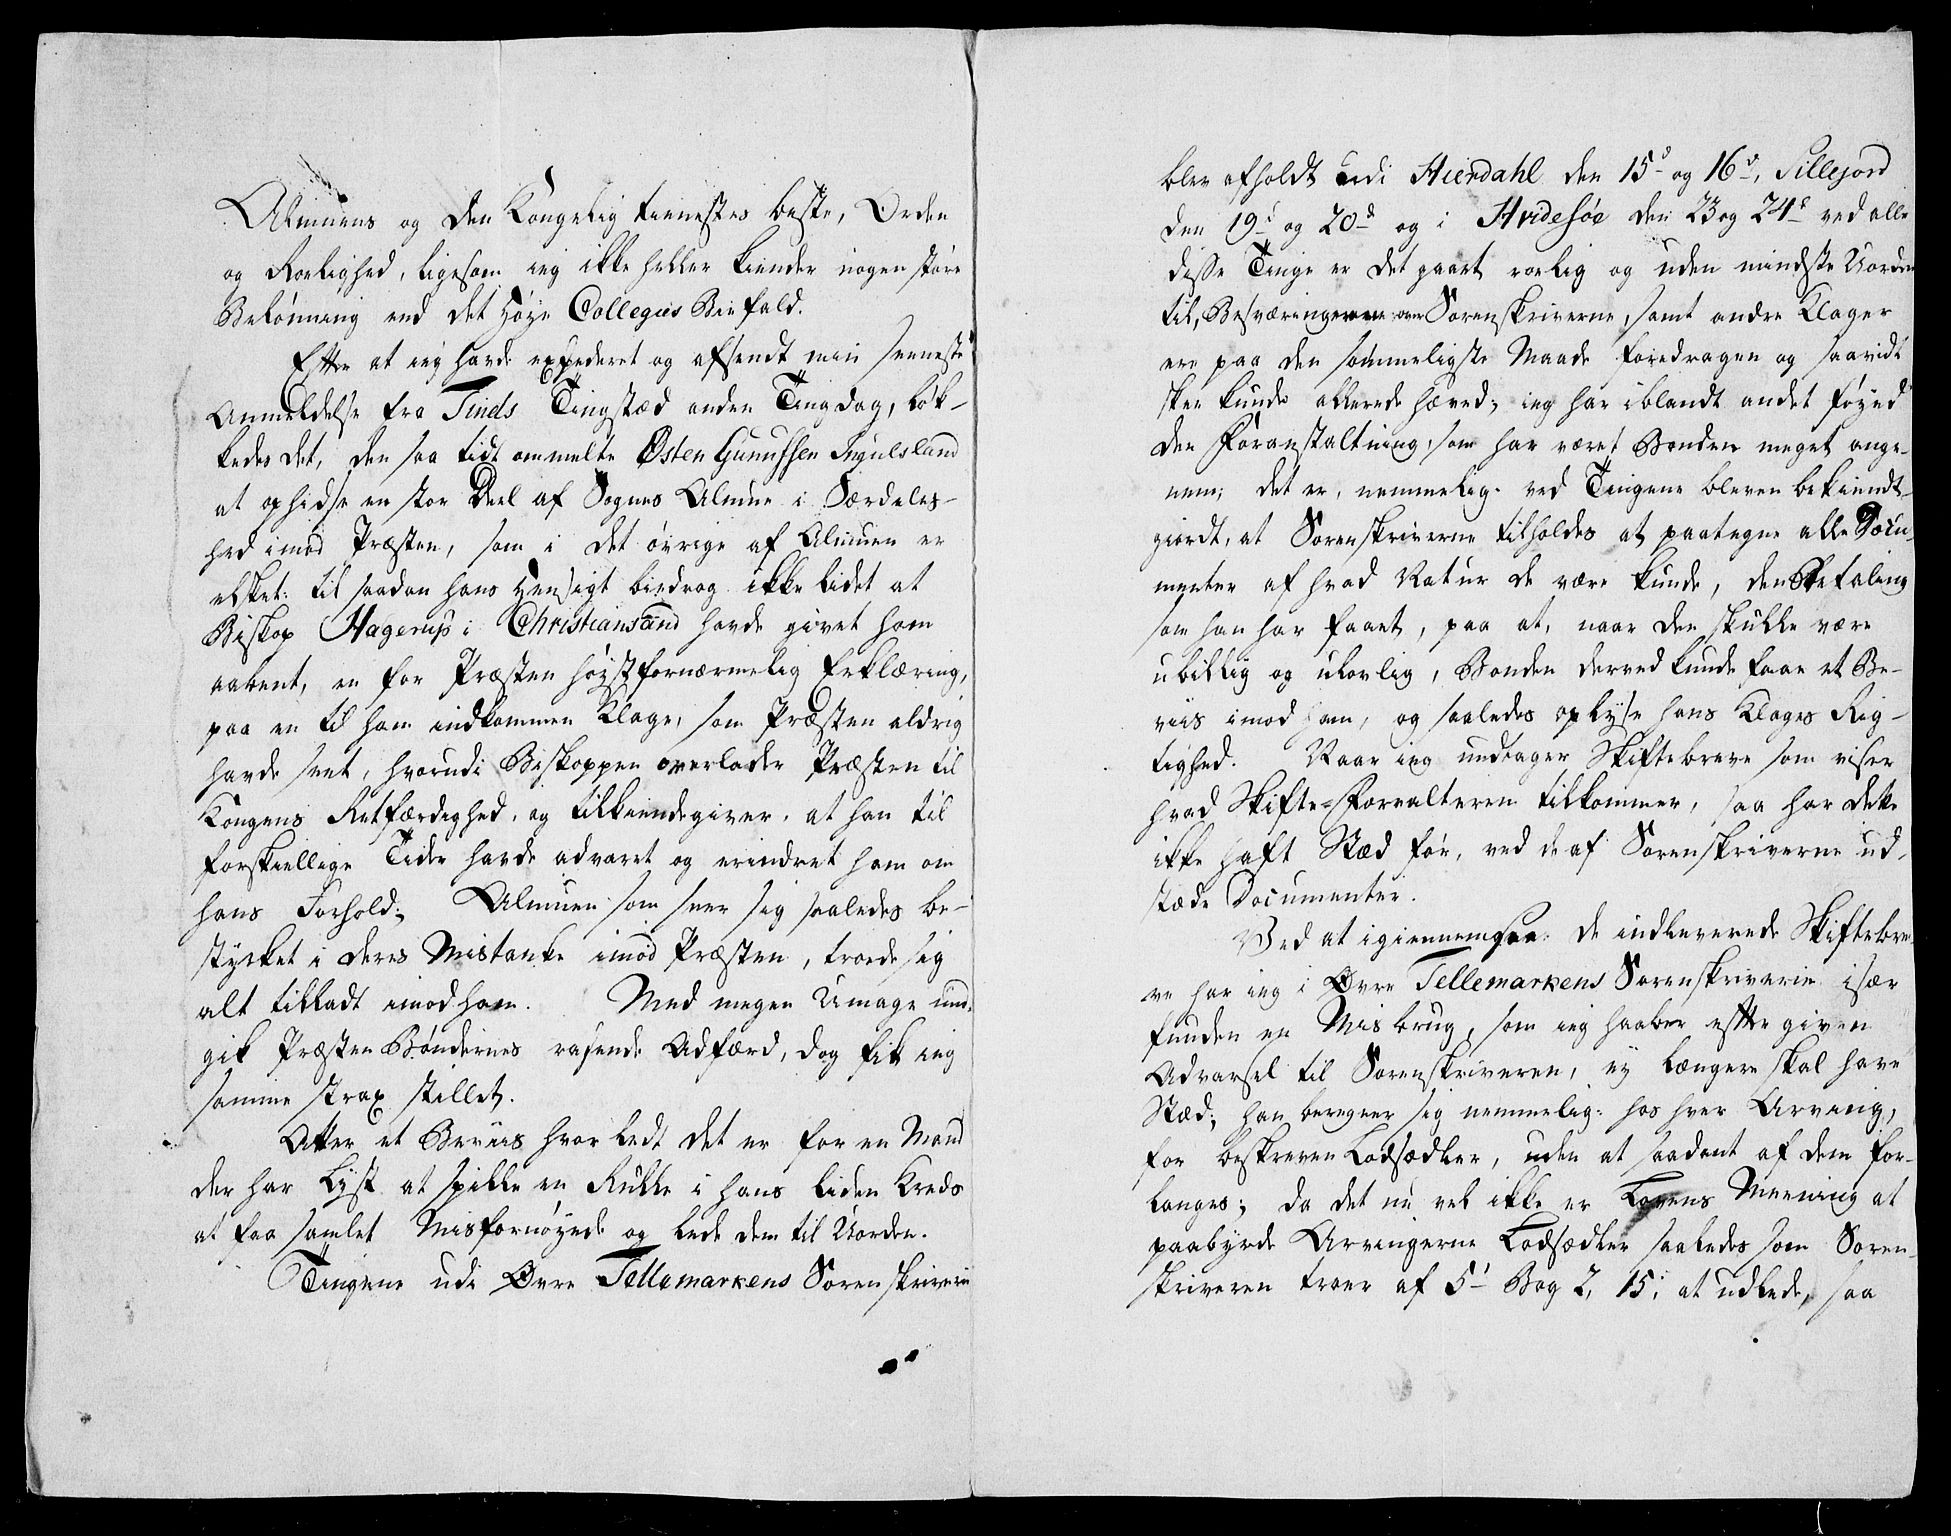 Almuens og den Kongelig tienestes beste, Orden
og Roelighed, ligesom ieg ikke heller kiender nogen støre
Belønning end det høye Collegies Biefald.
Efter at ieg havde expederet og afsendt min seeneste
Anmeldelse fra Tinds Tingstæd anden Tingdag, løk-
kedes det, den saa tidt ommelte Østen Gunufsen Ingulsland
at ophidse en stor Deel af Sognes Almue i Særdeles-
hed imod Præsten, som i det øvrige af Almuen er
elsket: til saadan hans Hensigt bidrog ikke lidet at
Biskop Hagerup i Christiansand havde givet ham
aabent, en for Præsten høystfornærmelig Erklæring,
paa en til ham indkommen Klage, som Præsten aldrig
havde seet, hvorudi Biskoppen overlader Præsten til
Kongens Retfærdighed, og tilkiendegiver, at han til
forskiellige Tider havde advaret og erindret ham om
hans Forhold; Almuen som seer sig saaledes be-
styrket i deres Mistanke imod Præsten, troede sig
alt tilladt imod ham. Med megen Umage und-
gik Præsten Bøndernes rasende Adfærd, dog fik ieg
samme strax stillet.
Atter et Beviis hvor ledt det er for en Mand
der har Lyst at spille en Rulle i hans liden Kreds
at faa samlet Misfornøyede og lede dem til Uorden.
Tingene udi Øvre Tellemarkens Sorenskriverie
blev afholdt udi Hierdahl den 15d og 16d, Sillejord
den 19d og 20d og i Hvidesøe den 23 og 24d ved alle
disse Tinge er det gaaet roelig og uden mindste Uorden
til, Besværingerne over Sorenskriverne, samt andre Klager
ere paa den sømmeligste Maade foredragen og saavidt
skee kunde allerede hæved; ieg har iblandt andet føyed
den Foranstaltning, som har været Bonden meget ange-
nem; det er, nemmelig: ved Tingene bleven bekiendt-
giordt, at Sorenskriverne tilholdes at paategne alle Docu-
menter af hvad Natur de være kunde, den Betaling
som han har faaet, paa at, naar den skulle være
ubillig og ulovlig, Bonden derved kunde faae et Be-
viis imod ham, og saaledes oplyse hans Klages Rig-
tighed. Naar ieg undtager Skiftebreve som viser
hvad Skifte-Forvalteren tilkommer, saa har dette
ikke haft Stæd før, ved de af Sorenskriverne ud-
stæde Documenter.
Ved at igiennemgaae de indleverede Skiftebre-
ve har ieg i Øvre Tellemarkens Sorenskriverie især
funden en Misbrug, som ieg haaber efter given
Advarsel til Sorenskriveren, ey længere skal have
Stæd; han beregner sig nemmelig: hos hver Arving,
for beskreven Lodsædler, uden at saadant af dem for-
langes; da det nu vel ikke er Lovens Meening at
paabyrde Arvingerne Lodsædler saaledes som Soren-
skriveren troer af 5t Bog 2, 15; at udlede, saa